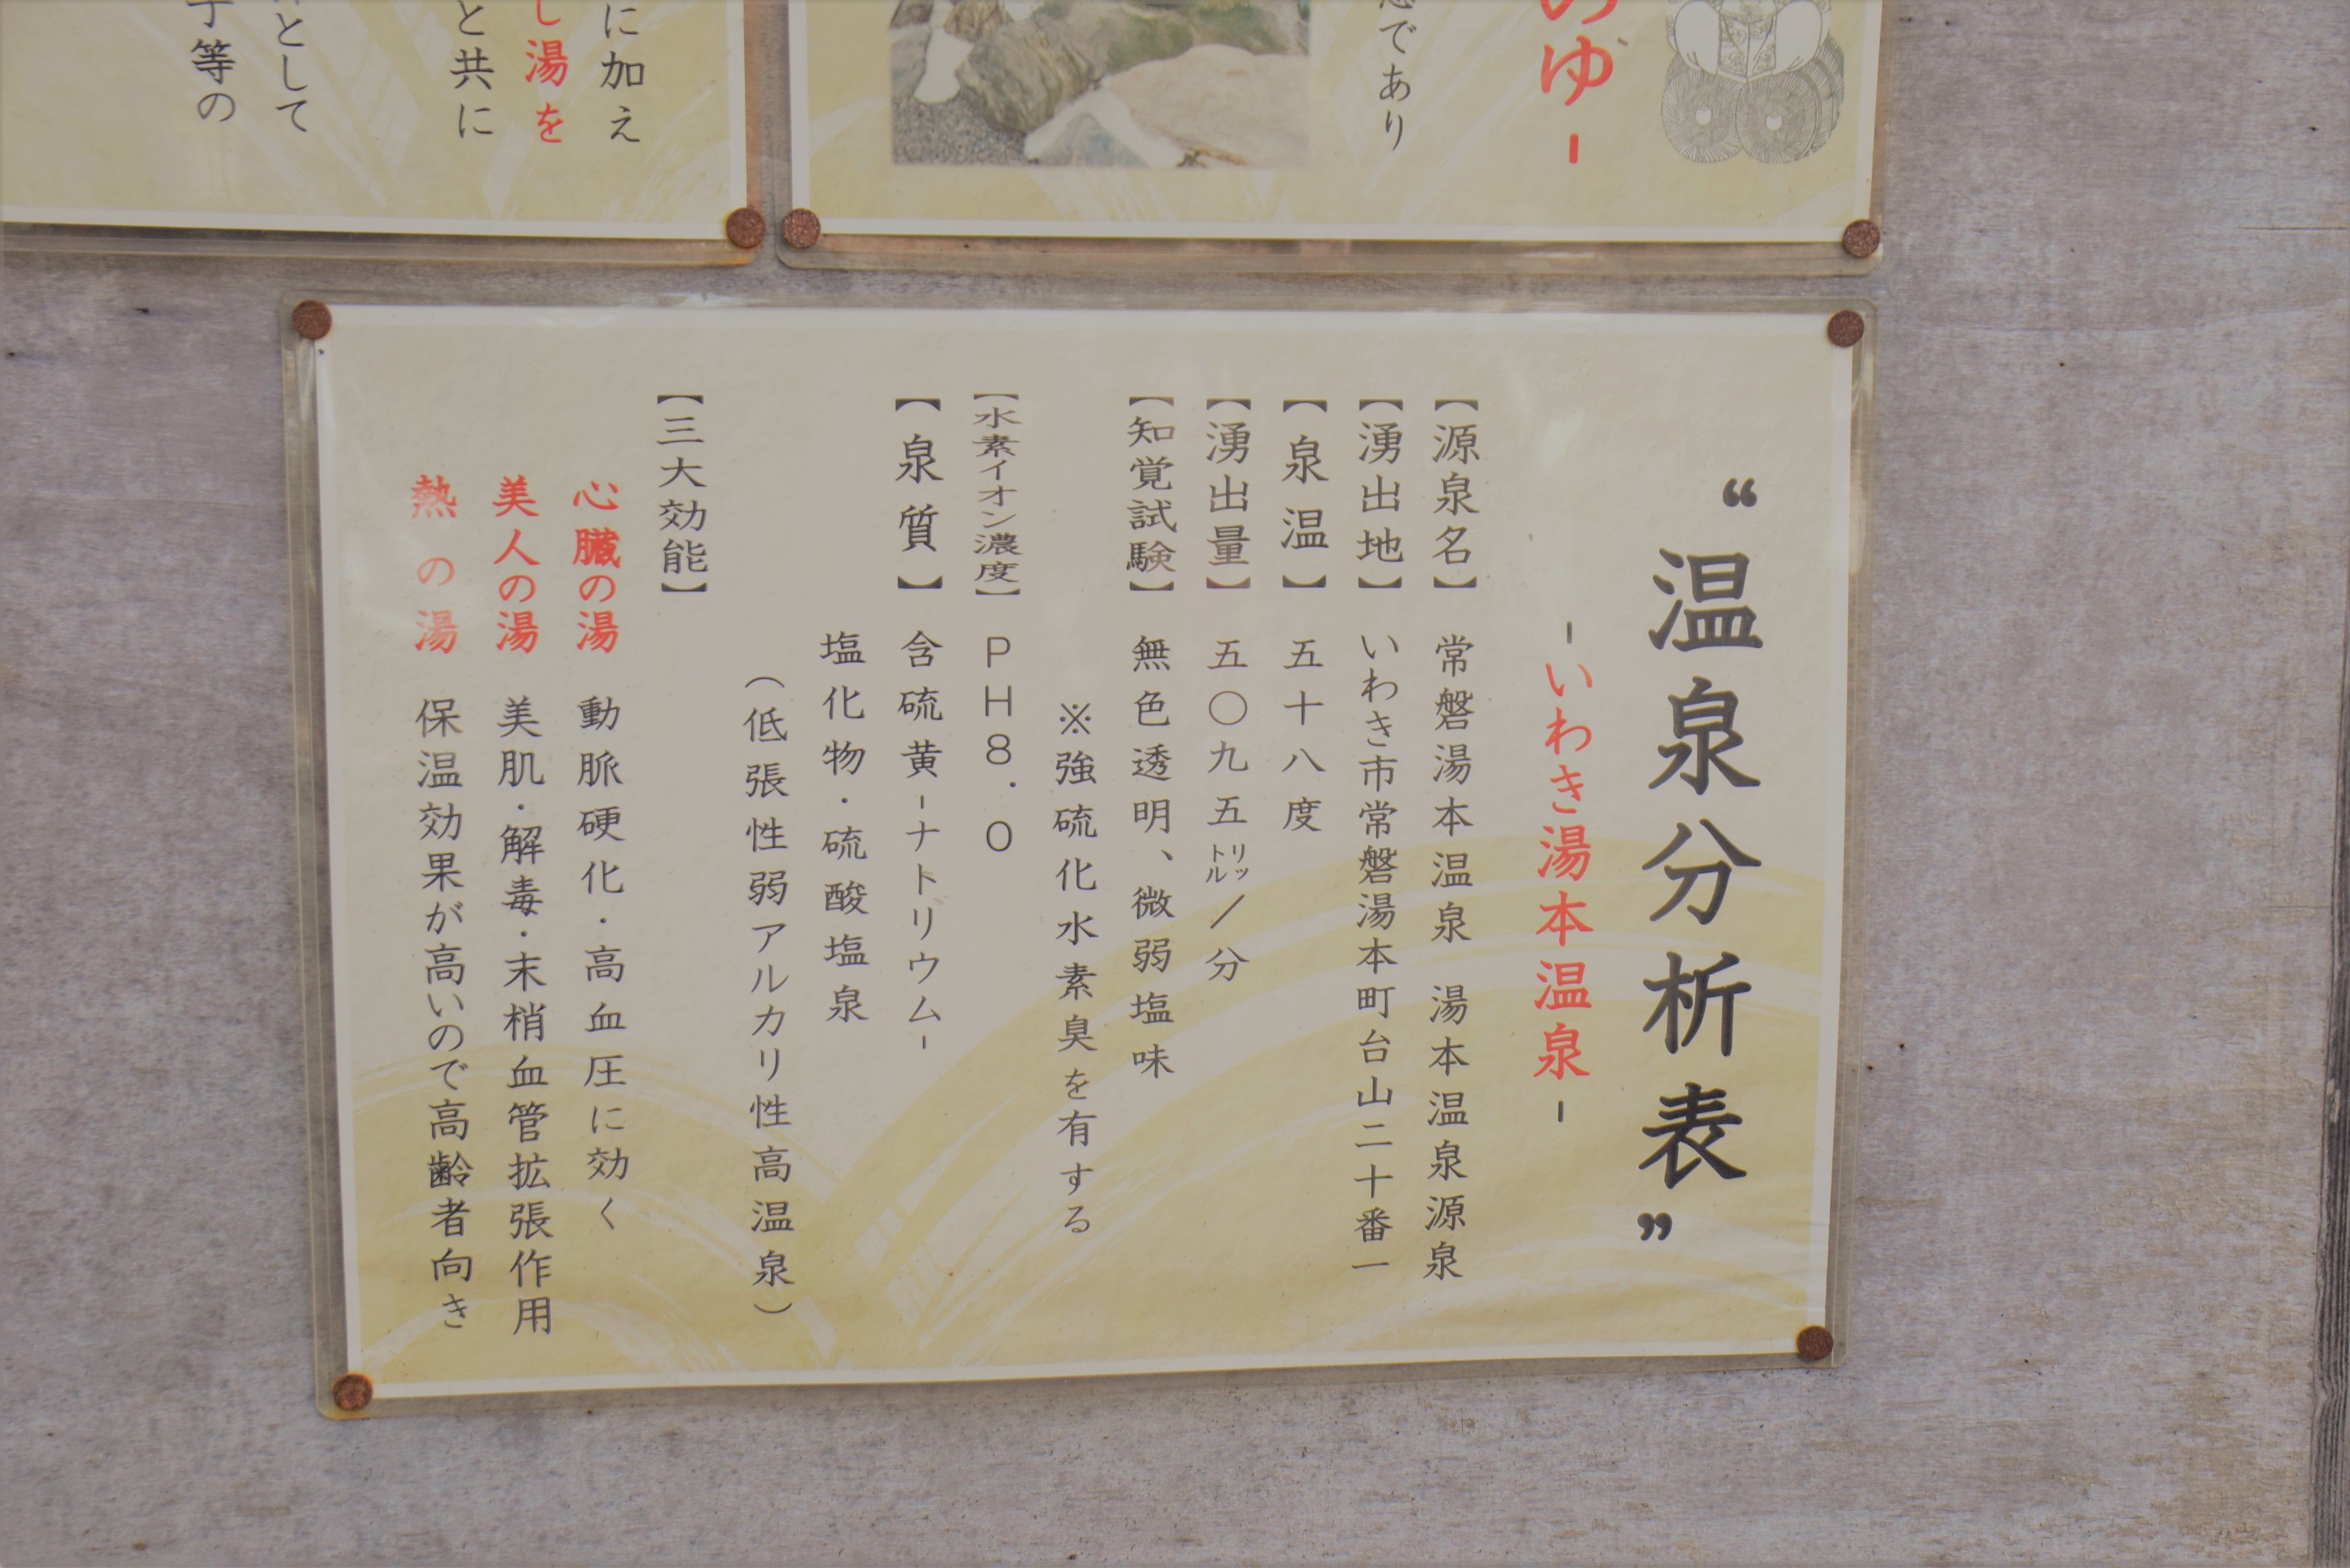 のゆ-
であり
に加え
し湯を
と共に
として
等の
“温泉分析表”
-いわき湯本温泉-
【源泉名】 常磐湯本温泉 湯本温泉源泉
【湧出地】 いわき市常磐湯本町台山二十番一
【泉温】 五十八度
【湧出量】 五〇九五リットル／分
【知覚試験】 無色透明、微弱塩味
※強硫化水素臭を有する
【水素イオン濃度】 PH8.0
【泉質】 含硫黄-ナトリウム-
塩化物・硫酸塩泉
(低張性弱アルカリ性高温泉)
【三大効能】
心臓の湯 動脈硬化・高血圧に効く
美人の湯 美肌・解毒・末梢血管拡張作用
熱の湯 保温効果が高いので高齢者向き